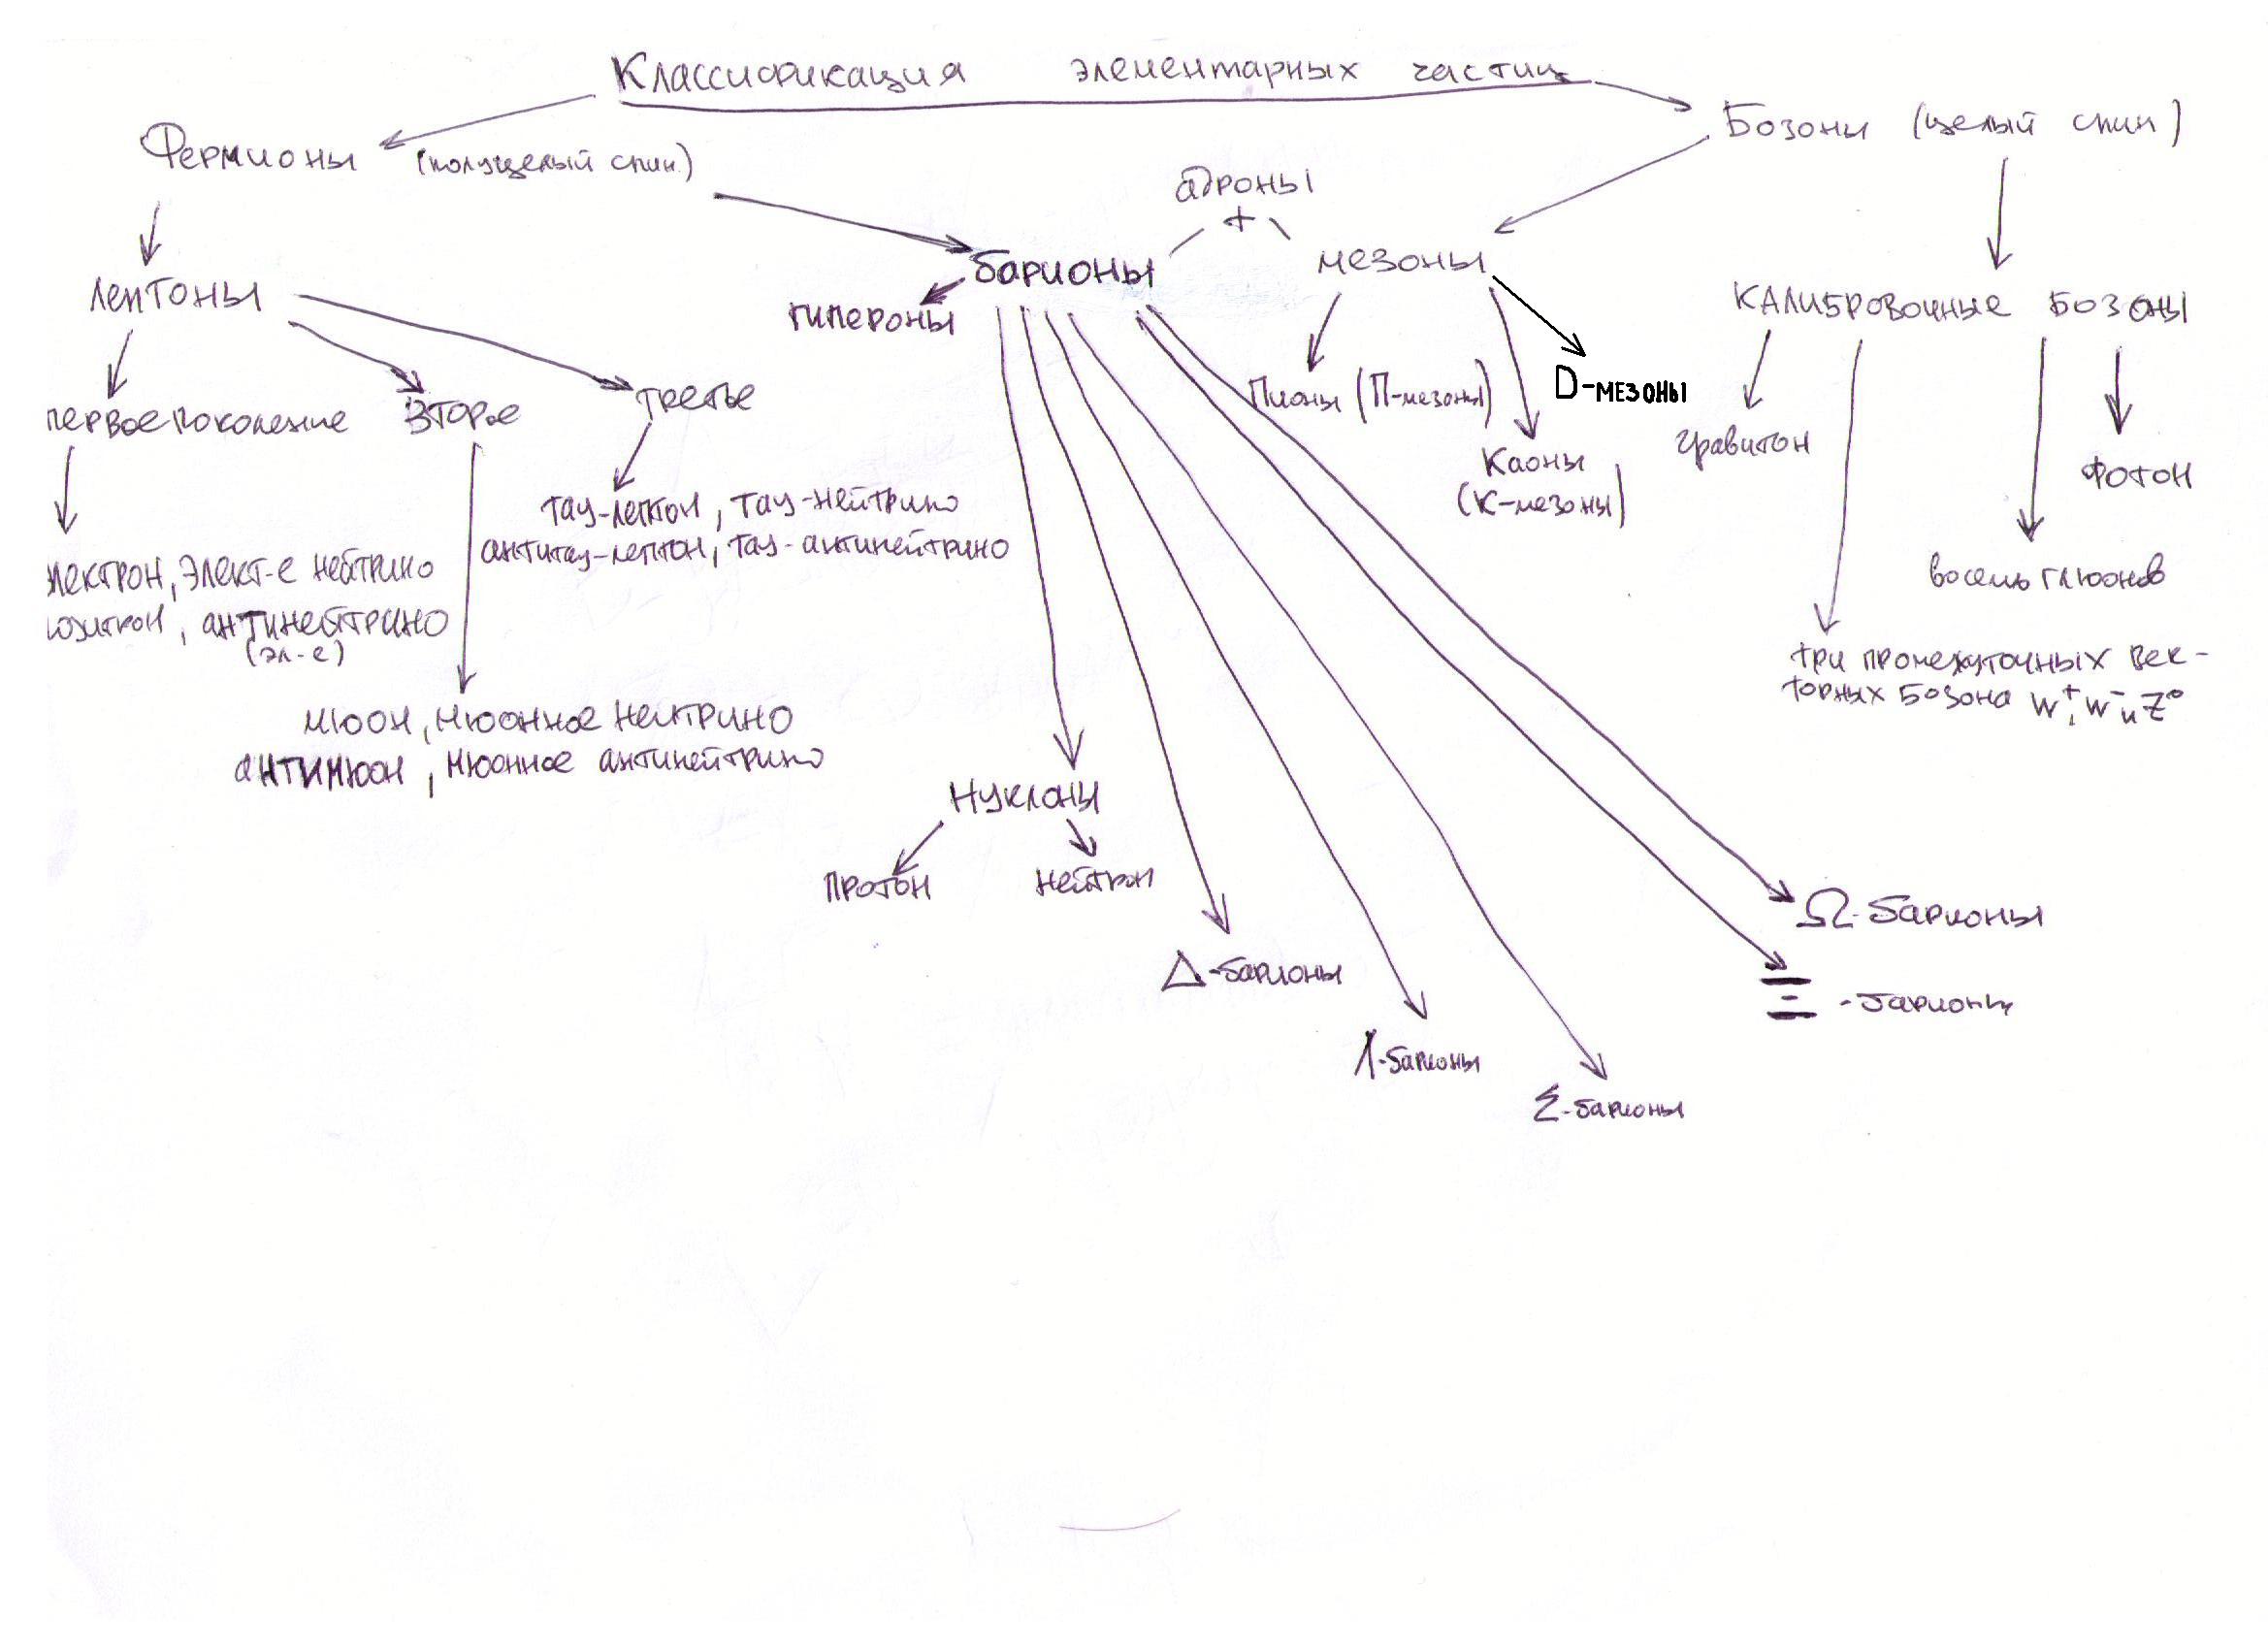 Классификация элементарных частиц
Фермионы (полуцелый спин)
Бозоны (целый спин)
адроны
+
Лептоны
барионы
гипероны
мезоны
КАЛИБРОВОЧНЫЕ БОЗОНЫ
первое поколение
второе
третье
Пионы (П-мезоны)
D-мезоны
Каоны
(К-мезоны)
гравитон
фотон
восемь глюонов
три промежуточных век-
торных бозона W⁺, W⁻ и Z⁰
тау-лептон, тау-нейтрино
антитау-лептон, тау-антинейтрино
электрон, элект-е нейтрино
позитрон, антинейтрино
(эл-е)
мюон, мюонное нейтрино
антимюон, мюонное антинейтрино
нуклоны
протон
нейтрон
Δ-барионы
Λ-барионы
Σ-барионы
Ω-барионы
Ξ-барионы